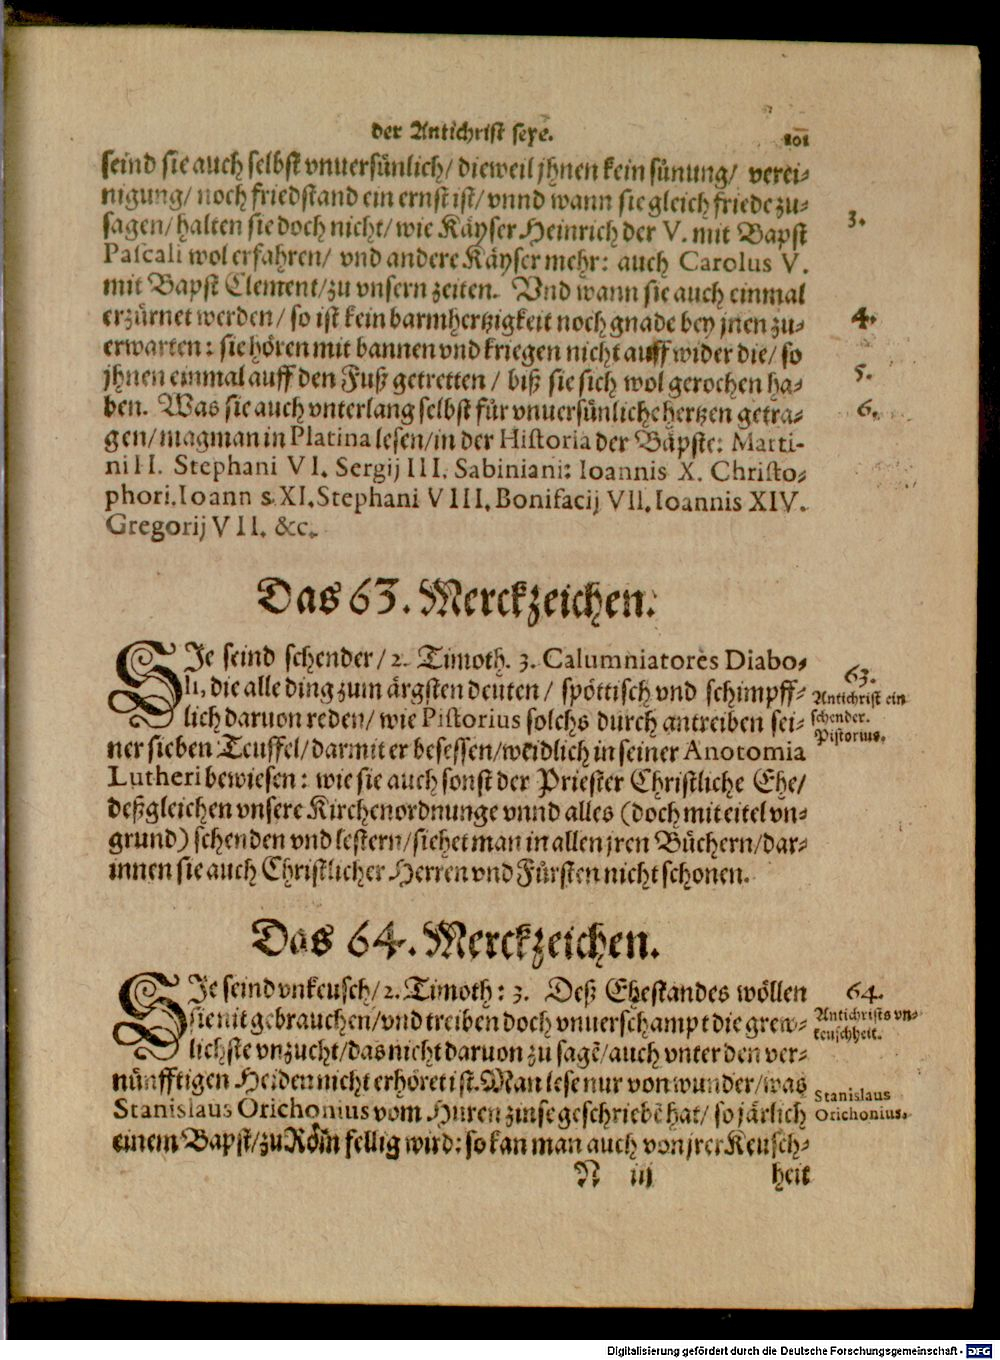 der Antichrist seye. 101
seind sie auch selbst vnuersünlich/ dieweil jhnen kein sünung/ verei-
nigung/ noch friedstand ein ernst ist/ vnnd wann sie gleich friede zu-
sagen/ halten sie doch nicht/ wie Käyser Heinrich der V. mit Bapst
3.
Pascali wol erfahren/ vnd andere Käyser mehr: auch Carolus V.
mit Bapst Clement/ zu vnsern zeiten. Vnd wann sie auch einmal
erzürnet werden/ so ist kein barmhertzigkeit noch gnade bey jnen zu-
4.
erwarten: sie hören mit bannen vnd kriegen nicht auff wider die/ so
jhnen einmal auff den Fuß getretten/ biß sie sich wol gerochen ha-
5.
ben. Was sie auch vnterlang selbst für vnuersünliche hertzen getra-
6.
gen/ mag man in Platina lesen/ in der Historia der Bäpste: Marti-
ni II. Stephani VI. Sergij III. Sabiniani: Ioannis X. Christo-
phori. Ioann s XI. Stephani VIII. Bonifacij VII. Ioannis XIV.
Gregorij VII. &c.
Das 63. Merckzeichen.
SIe seind schender/ 2. Timoth. 3. Calumniatores Diabo-
li, die alle ding zum ärgsten deuten/ spöttisch vnd schimpff-
lich daruon reden/ wie Pistorius solchs durch antreiben sei-
ner sieben Teuffel/ darmit er besessen/ weidlich in seiner Anotomia
Lutheri bewiesen: wie sie auch sonst der Priester Christliche Ehe/
deßgleichen vnsere Kirchenordnunge vnnd alles (doch mit eitel vn-
grund) schenden vnd lestern/ siehet man in allen jren Büchern/ dar-
innen sie auch Christlicher Herren vnd Fürsten nicht schonen.
63.
Antichrist ein
schender.
Pistorius.
Das 64. Merckzeichen.
SIe seind vnkeusch/ 2. Timoth: 3. Deß Ehestandes wöllen
sie nit gebrauchen/ vnd treiben doch vnuerschampt die grew-
lichste vnzucht/ das nicht daruon zu sagē/ auch vnter den ver-
nünfftigen Heiden nicht erhöret ist. Man lese nur von wunder/ was
Stanislaus Orichonius vom Huren zinse geschriebē hat/ so järlich
einem Bapst/ zu Röm fellig wird: so kan man auch von jrer Keusch-
64.
Antichrists vn-
keuschheit.
Stanislaus
Orichonius.
N iij heit
Digitalisierung gefördert durch die Deutsche Forschungsgemeinschaft - DFG